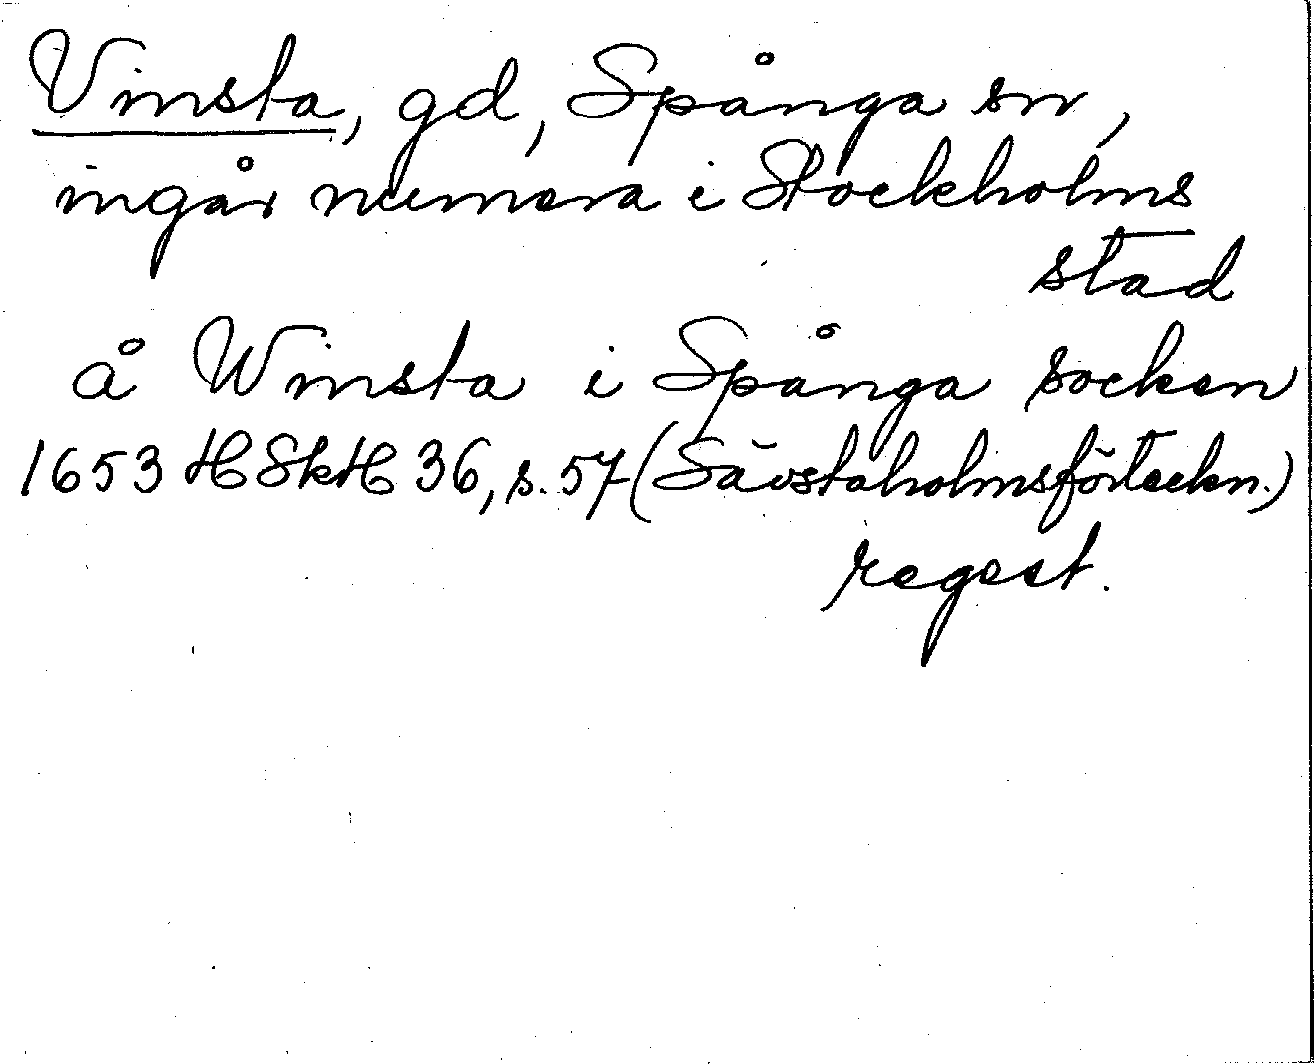 Vinsta, gd, Spånga sn,
ingår numera i Stockholms
stad
å Winsta i Spånga socken
1653 HSkH 36, s. 57 (Sävstaholmsförteckn.)
regest.